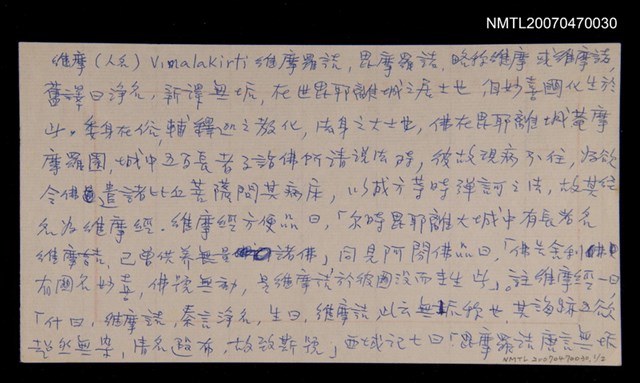 NMTL20070470030
維摩（人名）Vimalakirti 維摩羅詰，毘摩羅詰，略稱維摩或維摩詰，
舊譯曰淨名，新譯無垢，在世毘耶離城之居士也，自妙喜國化生於
此，委身在俗，輔釋迦之教化，法身之大士也，佛在毘耶離城菴摩
摩羅園，城中五百長者子詣佛所請說法時，彼故現病不往，為欲
令佛遣諸比丘菩薩問其病床，以成方等時彈訶之法，故其經
名為維摩經．維摩經方便品曰，「尔時毘耶離大城中有長者名
維摩詰，已曾供養無量諸佛」同見阿閦佛品曰，「佛告舍利佛
有國名妙喜，佛號無動，是維摩詰於彼國沒而来生此」，註維摩經一曰
「什曰，維摩詰，秦言淨名，生曰，維摩詰，此云無垢稱也，其詣跡五欲
超然無染，清名遐布，故致斯號」西域記七曰「毘摩羅詰唐言無垢
NMTL 20070470030, 1/2